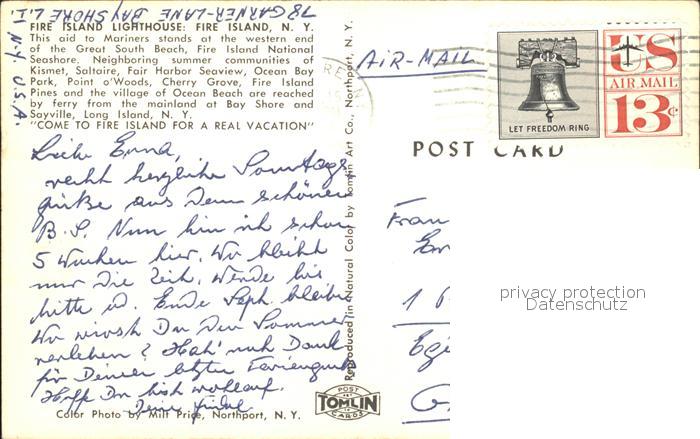 78 GARNER-LANE BAY SHORE L.I.
N.Y. U.S.A.
FIRE ISLAND LIGHTHOUSE: FIRE ISLAND, N. Y.
This aid to Mariners stands at the western end
of the Great South Beach, Fire Island National
Seashore. Neighboring summer communities of
Kismet, Saltaire, Fair Harbor Seaview, Ocean Bay
Park, Point o'Woods, Cherry Grove, Fire Island
Pines and the village of Ocean Beach are reached
by ferry from the mainland at Bay Shore and
Sayville, Long Island, N. Y.
"COME TO FIRE ISLAND FOR A REAL VACATION"
Liebe Erna,
recht herzliche Sonntags
grüße aus dem schönen
B.S. Nun bin ich schon
5 Wochen hier. Wo bleibt
nur die Zeit. Werde bis
Ende Sept. bleiben
Wo wirst Du den Sommer
verleben? Hab' noch Dank
für Deinen letzten Feriengruß
Hoffe Du bist wohlauf.
Deine
Color Photo by Milt Price, Northport, N. Y.
Reproduced in Natural Color by Tomlin Art Co., Northport, N. Y.
POST
ART
TOMLIN
CARDS
AIR-MAIL
LET FREEDOM RING
US
AIR MAIL
13c
POST CARD
Frau
privacy protection
Datenschutz